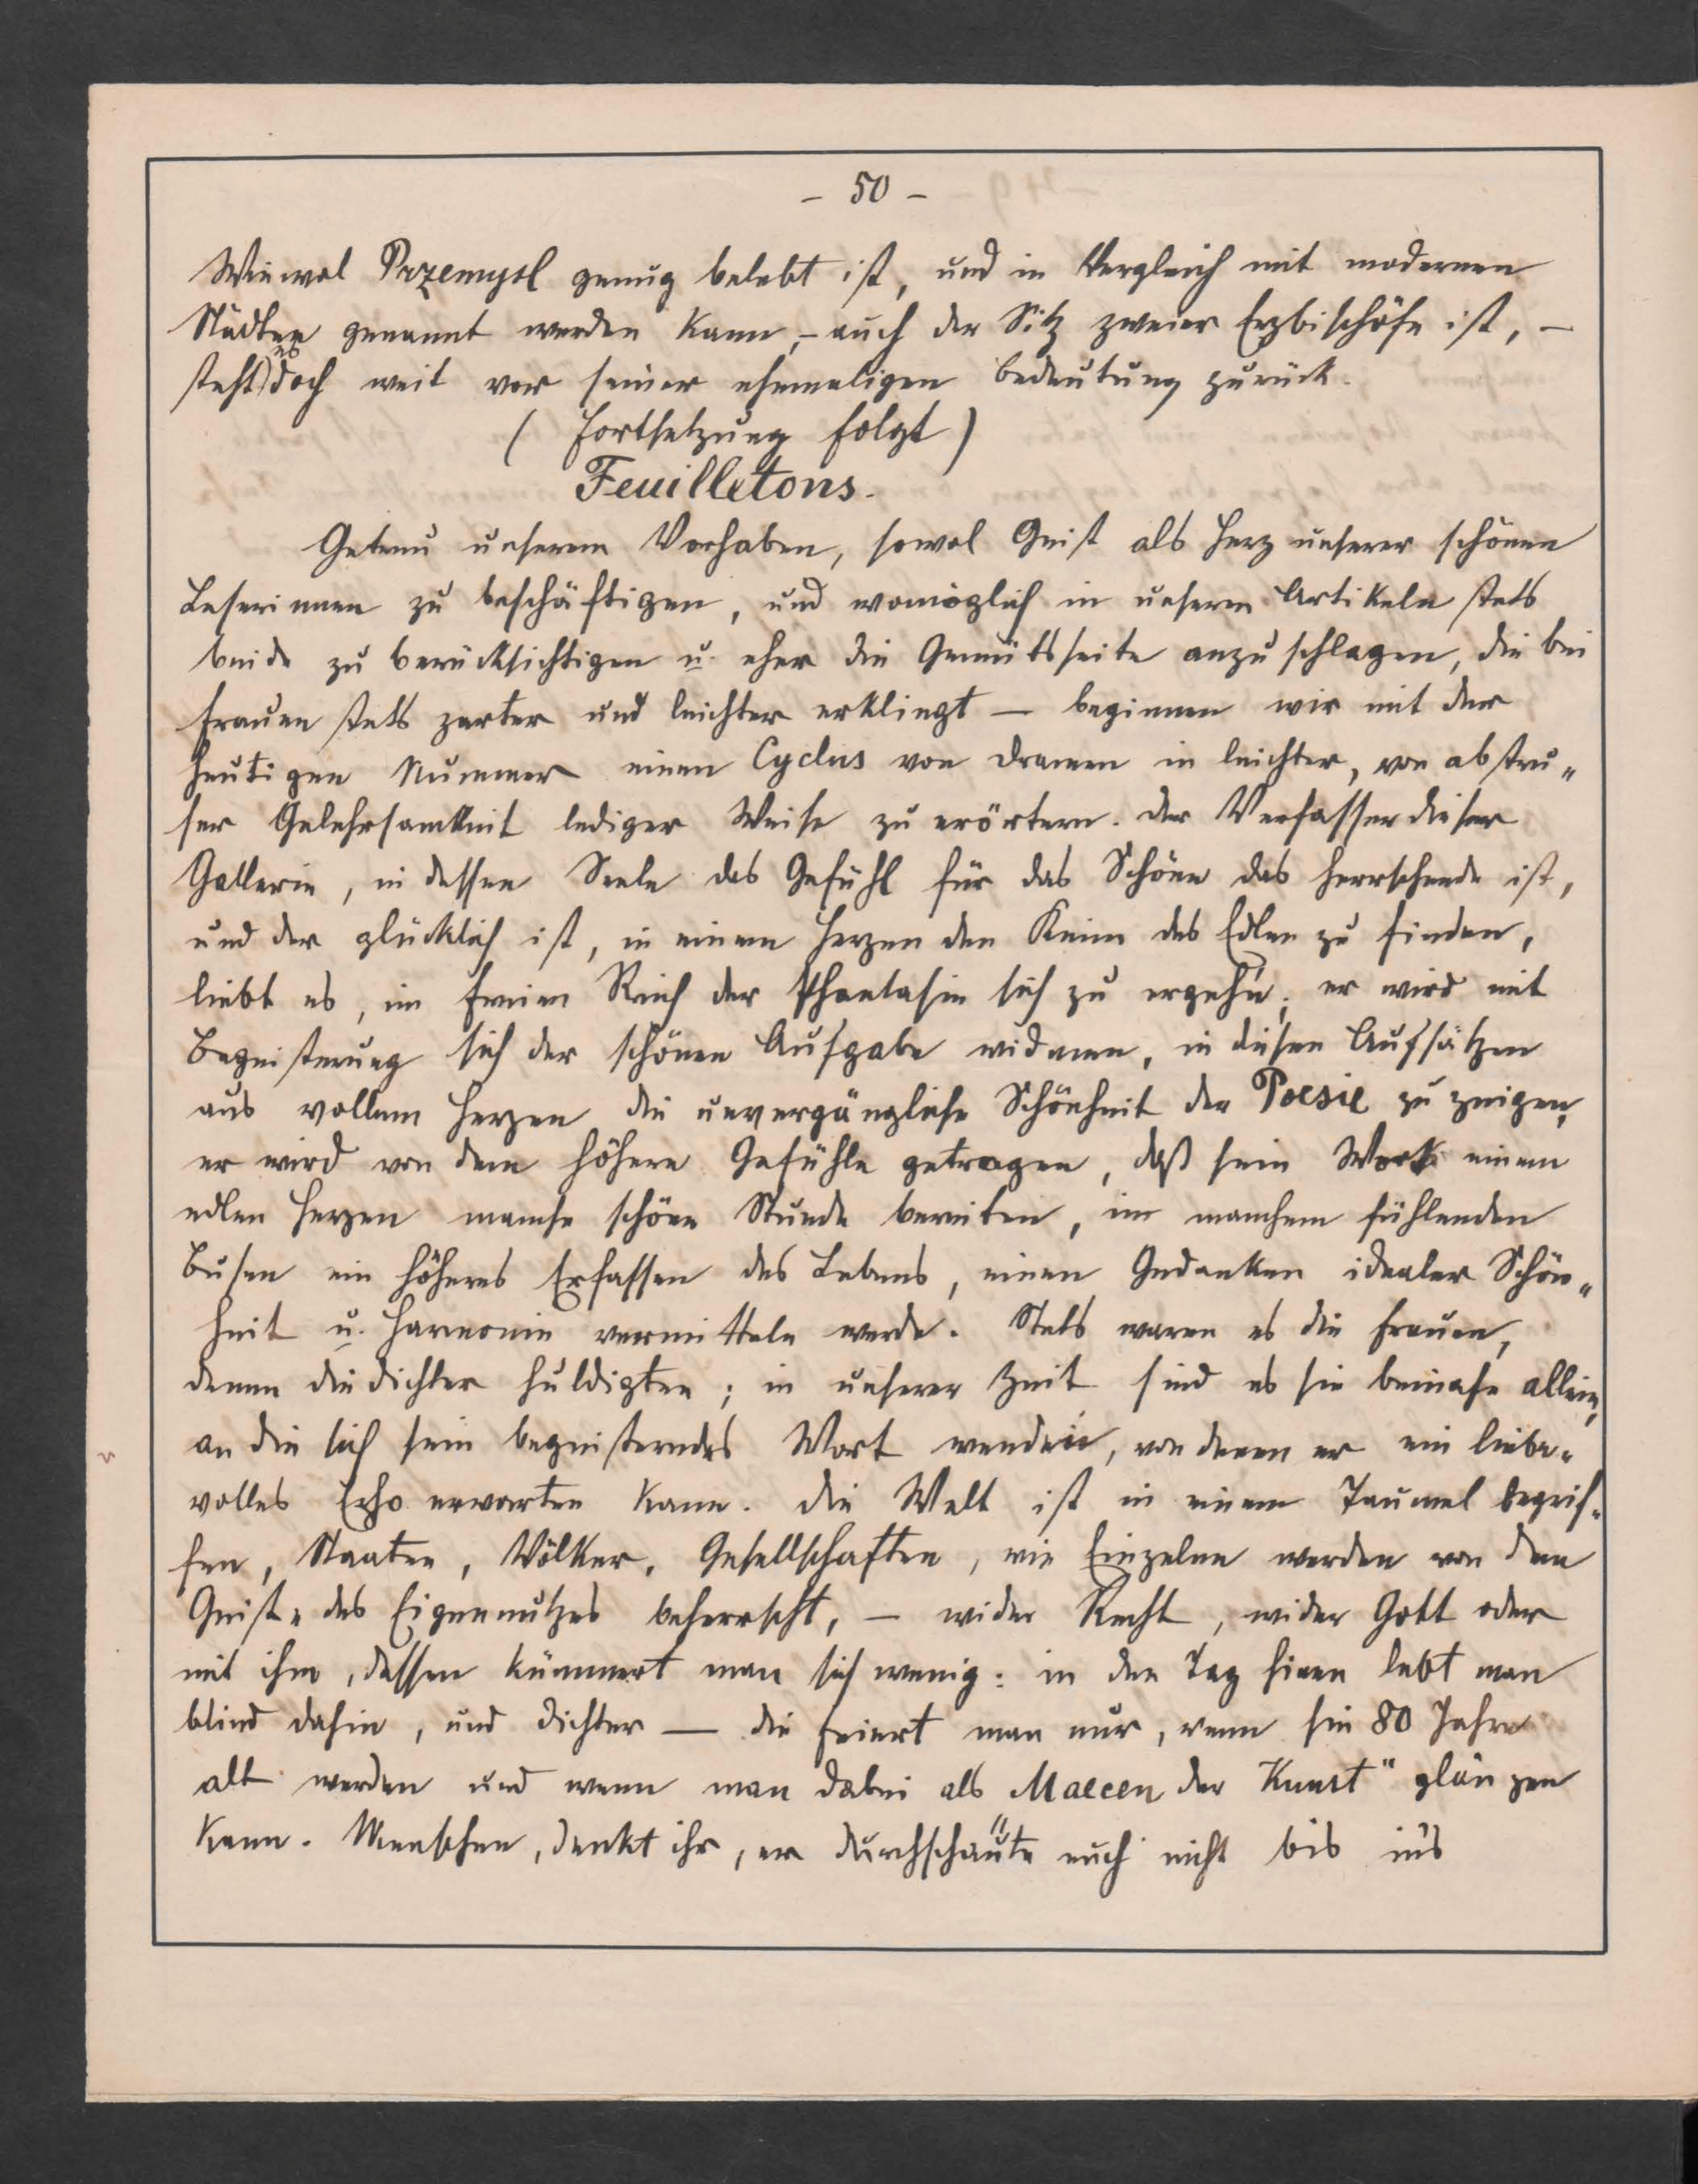 - 50 -
Wiewol Przemysl genug belebt ist, und in Vergleich mit modernen
Städten genannt werden kann, - auch der Sitz zweier Erzbischöfe ist, -
steht es doch weit vor seiner ehemaligen Bedeutung zurück.
( Fortsetzung folgt )
Feuilletons.
Getreu unserem Vorhaben, sowol Geist als Herz unserer schönen
Leserinnen zu beschäftigen, und womöglich in unseren Artikeln stets
beide zu berücksichtigen u. eher die Gemütsseite anzuschlagen, die bei
Frauen stets zarter und leichter erklingt — beginnen wir mit der
heutigen Nummer einen Cyclus von Dramen in leichter, von abstru„
ser Gelehrsamkeit lediger Weise zu erörtern. Der Verfasser dieser
Gallerie, in dessen Seele das Gefühl für das Schöne das herrschende ist,
und der glücklich ist, in einem Herzen den Keim des Edlen zu finden,
liebt es, im freien Reich der Phantasie sich zu ergeh'n; er wird mit
Begeisterung sich der schönen Aufgabe widmen, in diesen Aufsätzen
aus vollem Herzen die unvergängliche Schönheit der Poesie zu zeigen,
er wird von dem höhern Gefühle getragen, daß sein Werk einem
edlen Herzen manche schöne Stunde bereiten, im manchem fühlenden
Busen ein höheres Erfassen des Lebens, einen Gedanken idealer Schön„
heit u. Harmonie vermitteln werde. Stets waren es die Frauen,
denen die Dichter huldigten; in unserer Zeit sind es sie beinahe allein,
an die sich sein begeisterndes Wort wenden, von denen er ein liebe„
volles Echo erwarten kann. Die Welt ist in einem Taumel begrif„
fen, Staaten, Völker, Gesellschaften, wie Einzelne werden von dem
Geiste des Eigennutzes beherrscht, — wider Recht, wider Gott oder
mit ihm, dessen kümmert man sich wenig: in den Tag hinen lebt man
blind dahin, und Dichter — die feiert man nur, wenn sie 80 Jahre
alt werden und wenn man dabei als Maecen der Kunst" glänzen
kann. Menschen, denkt ihr, er durchschaute euch nicht bis in's